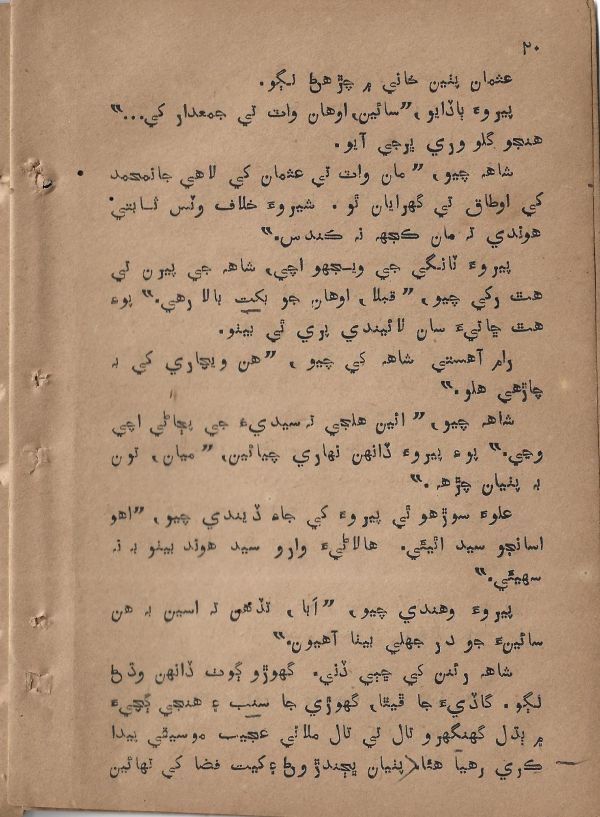 ۲۰
عثمان پٺين خاني ۾ چڙهڻ لڳو.
پيروءَ ٻاڏايو، ”سائين، اوهان واٽ تي جمعدار کي...“
هنجو گلو وري ڀرجي آيو.
شاهہ چيو، ”مان واٽ تي عثمان کي لاهي جانمحمد
کي اوطاق تي گهرايان ٿو. شيروءَ خلاف وٽس ثابتي
هوندي تہ مان ڪجهہ نہ ڪندس.“
پيروءَ ٽانگي جي ويجهو اچي، شاهہ جي پيرن تي
هٿ رکي چيو، ”قبلا، اوهان جو بکت بالا رهي.“ پوءِ
هٿ ڇاتيءَ سان لائيندي پري ٿي بيٺو.
رام آهستي شاهہ کي چيو، ”هن ويچاري کي بہ
چاڙهي هلو.“
شاهہ چيو، ”ائين هلجي تہ سيديءَ جي پڄاڻي اچي
وڃي.“ پوءِ پيروءَ ڏانهن نهاري چيائين، ”ميان، تون
بہ پٺيان چڙهہ.“
علوءَ سوڙهو ٿي پيروءَ کي جاءِ ڏيندي چيو، ”اهو
اسانجو سيد اٿيئي. هالاڻيءَ وارو سيد هوند بيٺو بہ نہ
سهيئي.“
پيروءَ وهندي چيو، ”اَبا، تڏهن تہ اسين بہ هن
سائينءَ جو در جهلي بيٺا آهيون.“
شاهہ رئنن کي ڇپي ڏني. گهوڙو ڳوٺ ڏانهن وڌڻ
لڳو. گاڏيءَ جا ڦيٿا، گهوڙي جا سنب ۽ هنجي ڳچيءَ
۾ ٻڌل گهنگهرو تال تي تال ملائي عجيب موسيقي پيدا
ڪري رهيا هئا. پٺيان ڀڄندڙ وڻ ۽ کيت فضا کي تهائين